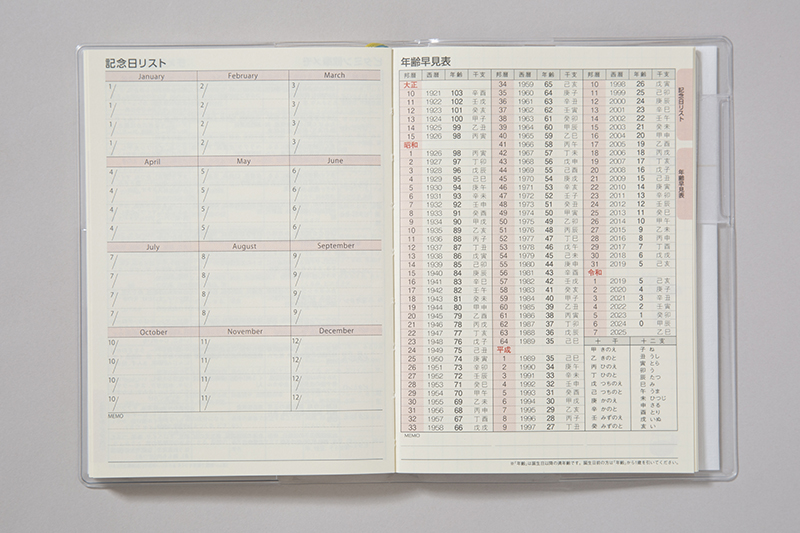 記念日リスト
January February March
1/ 2/ 3/
1/ 2/ 3/
1/ 2/ 3/
1/ 2/ 3/
April May June
4/ 5/ 6/
4/ 5/ 6/
4/ 5/ 6/
4/ 5/ 6/
July August September
7/ 8/ 9/
7/ 8/ 9/
7/ 8/ 9/
7/ 8/ 9/
October November December
10/ 11/ 12/
10/ 11/ 12/
10/ 11/ 12/
10/ 11/ 12/
MEMO
年齢早見表
邦暦 西暦 年齢 干支 邦暦 西暦 年齢 干支 邦暦 西暦 年齢 干支
大正 34 1959 65 己亥 10 1998 26 戊寅
10 1921 103 辛酉 35 1960 64 庚子 11 1999 25 己卯
11 1922 102 壬戌 36 1961 63 辛丑 12 2000 24 庚辰
12 1923 101 癸亥 37 1962 62 壬寅 13 2001 23 辛巳
13 1924 100 甲子 38 1963 61 癸卯 14 2002 22 壬午
14 1925 99 乙丑 39 1964 60 甲辰 15 2003 21 癸未
15 1926 98 丙寅 40 1965 59 乙巳 16 2004 20 甲申
昭和 41 1966 58 丙午 17 2005 19 乙酉
1 1926 98 丙寅 42 1967 57 丁未 18 2006 18 丙戌
2 1927 97 丁卯 43 1968 56 戊申 19 2007 17 丁亥
3 1928 96 戊辰 44 1969 55 己酉 20 2008 16 戊子
4 1929 95 己巳 45 1970 54 庚戌 21 2009 15 己丑
5 1930 94 庚午 46 1971 53 辛亥 22 2010 14 庚寅
6 1931 93 辛未 47 1972 52 壬子 23 2011 13 辛卯
7 1932 92 壬申 48 1973 51 癸丑 24 2012 12 壬辰
8 1933 91 癸酉 49 1974 50 甲寅 25 2013 11 癸巳
9 1934 90 甲戌 50 1975 49 乙卯 26 2014 10 甲午
10 1935 89 乙亥 51 1976 48 丙辰 27 2015 9 乙未
11 1936 88 丙子 52 1977 47 丁巳 28 2016 8 丙申
12 1937 87 丁丑 53 1978 46 戊午 29 2017 7 丁酉
13 1938 86 戊寅 54 1979 45 己未 30 2018 6 戊戌
14 1939 85 己卯 55 1980 44 庚申 31 2019 5 己亥
15 1940 84 庚辰 56 1981 43 辛酉 令和
16 1941 83 辛巳 57 1982 42 壬戌 1 2019 5 己亥
17 1942 82 壬午 58 1983 41 癸亥 2 2020 4 庚子
18 1943 81 癸未 59 1984 40 甲子 3 2021 3 辛丑
19 1944 80 甲申 60 1985 39 乙丑 4 2022 2 壬寅
20 1945 79 乙酉 61 1986 38 丙寅 5 2023 1 癸卯
21 1946 78 丙戌 62 1987 37 丁卯 6 2024 0 甲辰
22 1947 77 丁亥 63 1988 36 戊辰 7 2025 乙巳
23 1948 76 戊子 64 1989 35 己巳 十干 十二支
24 1949 75 己丑 平成 甲 きのえ 子 ね
25 1950 74 庚寅 1 1989 35 己巳 乙 きのと 丑 うし
26 1951 73 辛卯 2 1990 34 庚午 丙 ひのえ 寅 とら
27 1952 72 壬辰 3 1991 33 辛未 丁 ひのと 卯 う
28 1953 71 癸巳 4 1992 32 壬申 戊 つちのえ 辰 たつ
29 1954 70 甲午 5 1993 31 癸酉 己 つちのと 巳 み
30 1955 69 乙未 6 1994 30 甲戌 庚 かのえ 午 うま
31 1956 68 丙申 7 1995 29 乙亥 辛 かのと 未 ひつじ
32 1957 67 丁酉 8 1996 28 丙子 壬 みずのえ 申 さる
33 1958 66 戊戌 9 1997 27 丁丑 癸 みずのと 酉 とり
戌 いぬ
亥 い
MEMO
※「年齢」は誕生日以降の満年齢です。誕生日前の方は「年齢」から1歳を引いてください。
記念日リスト
年齢早見表